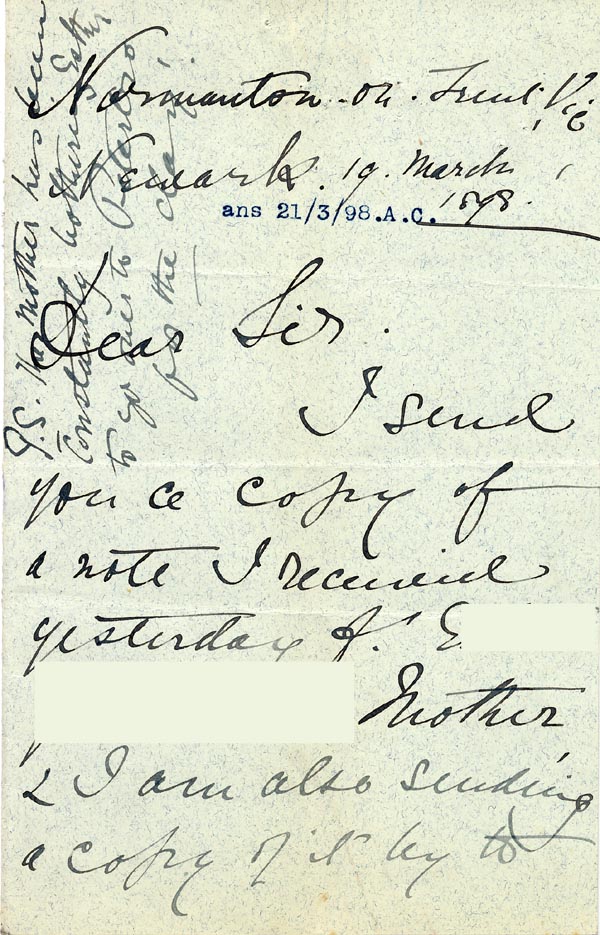 Normanton-on-Trent Vic
Newark. 19. March
1898.
ans 21/3/98.A.C.
Dear Sir.
I send
you a copy of
a note I received
yesterday f. E
Mother,
& I am also sending
a copy of it by to
P.S. Her mother has been
constantly bothering Esther
to go over to Peterboro
for the day